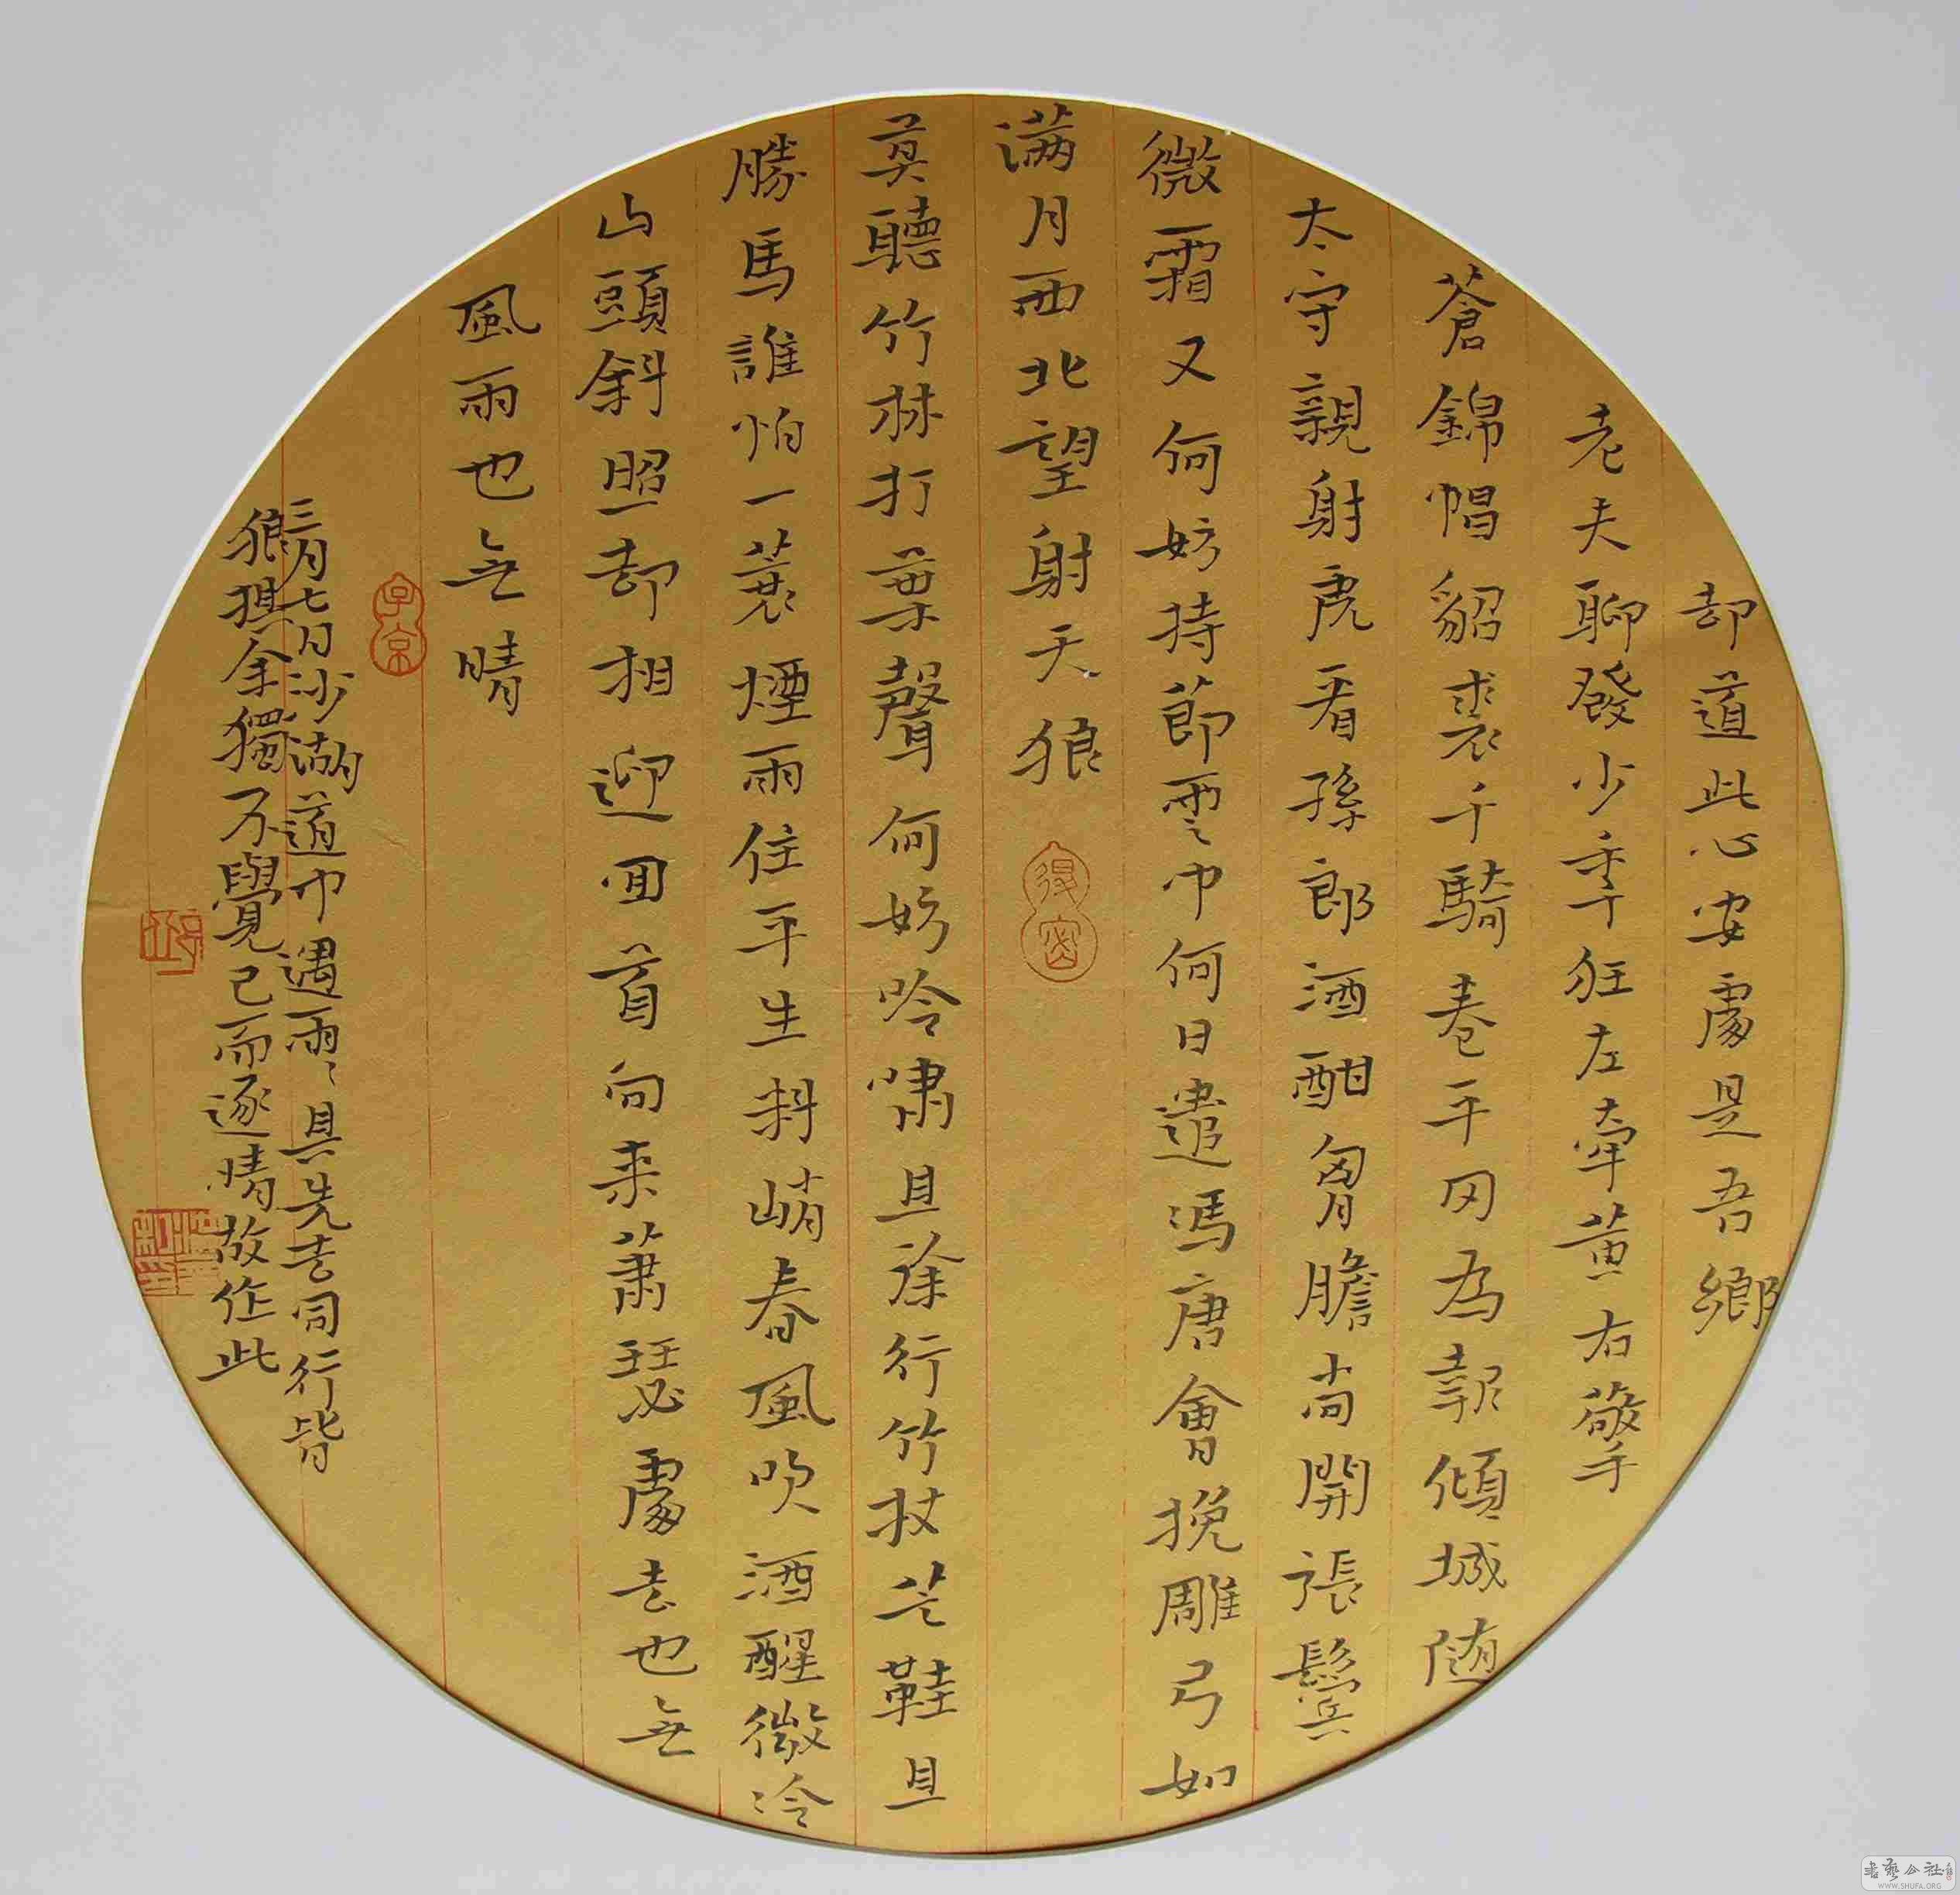 却道此心安處是吾鄉
老夫聊發少秊狂左牽黃右擎
蒼錦帽貂裘千騎卷平冈為報傾城随
太守親射虎看孫郎酒酣胷膽尚開張鬢
微霜又何妨持節雲中何日遣馮唐會挽雕弓如
满月西北望射天狼
莫聽竹林打葉聲何妨吟嘯且徐行竹杖芒鞋且
勝馬誰怕一蓑煙雨任平生料峭春風吹酒醒微冷
山頭斜照却相迎回首向来蕭瑟處去也無
風雨也無晴
三月七日沙湖道中遇雨〻具先去同行皆
狼狽余獨不覺已而遂晴故作此
子京
書藝公社
WWW.SHUFA.ORG